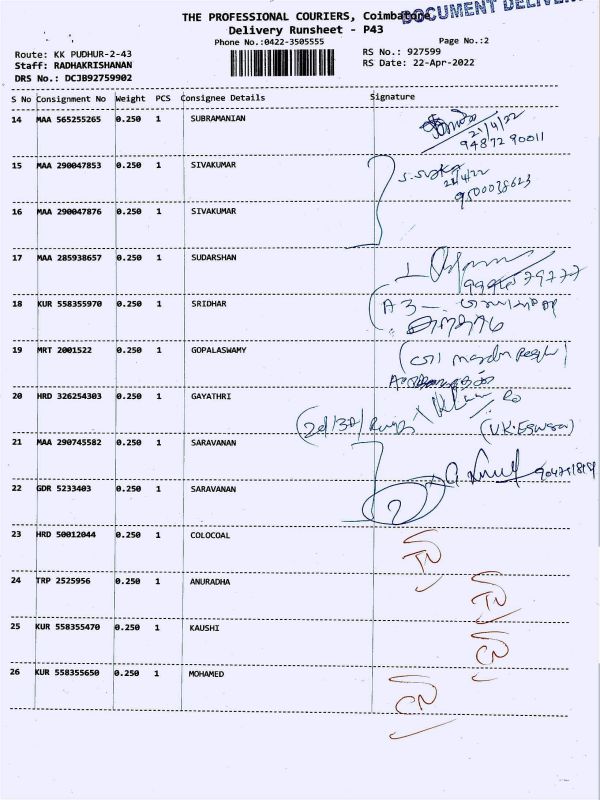 THE PROFESSIONAL COURIERS, Coimbatore
DOCUMENT DELIVER
Delivery Runsheet - P43
Phone No.:0422-3505555
Page No.:2
Route: KK PUDHUR-2-43
RS No.: 927599
Staff: RADHAKRISHANAN
RS Date: 22-Apr-2022
DRS No.: DCJB92759902
S No Consignment No Weight PCS Consignee Details Signature
14 MAA 565255265 0.250 1 SUBRAMANIAN
21/4/22
94872 90011
15 MAA 290047853 0.250 1 SIVAKUMAR
21/4/22
9500038623
16 MAA 290047876 0.250 1 SIVAKUMAR
17 MAA 285938657 0.250 1 SUDARSHAN
18 KUR 558355970 0.250 1 SRIDHAR
A3
19 MRT 2001522 0.250 1 GOPALASWAMY
20 HRD 326254303 0.250 1 GAYATHRI
21 MAA 290745582 0.250 1 SARAVANAN
22 GDR 5233403 0.250 1 SARAVANAN
2
23 HRD 50012044 0.250 1 COLOCOAL
24 TRP 2525956 0.250 1 ANURADHA
25 KUR 558355470 0.250 1 KAUSHI
CN
26 KUR 558355650 0.250 1 MOHAMED
CN